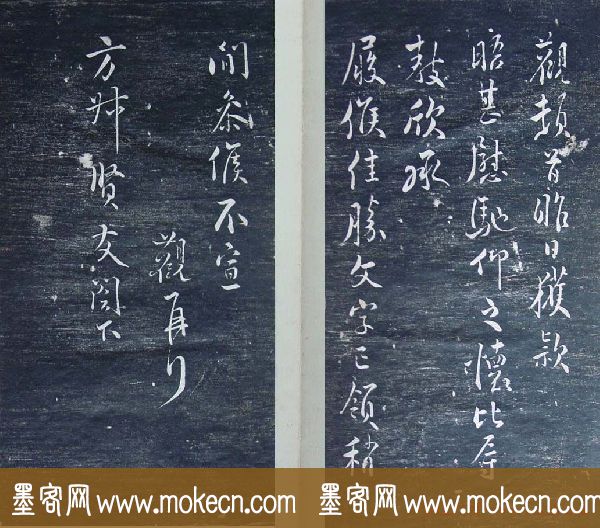 觀頓首昨日獲款
晤甚慰馳仰之懷比辱
教欣承
履候佳勝文字已領稍
間参候不宣
觀再拜
方叔賢友閣下
墨客网 www.mokecn.com
墨客网 www.mokecn.com